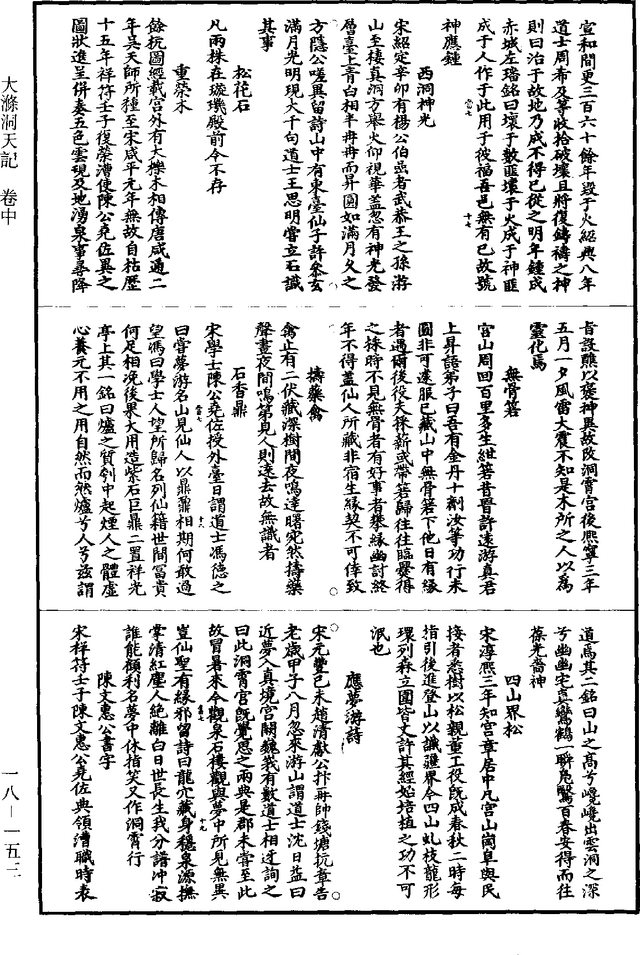 宣和間更三百六十餘年毀于火紹興八年
道士周希及等收拾破壞且將復鑄禱之神
則曰治于故地乃成不得已從之明年鐘成
赤城左璠銘曰壞于數匪壞于火成于神匪
成于人作于此用于彼福吾邑無有已故號
神應鐘
西洞神光
宋紹定辛卯有楊公伯嵒者武恭王之孫游
山至棲真洞方舉火仰視華蓋忽有神光發
層臺上青白相半冉冉而昇圓如滿月久之
方隱公嗟異留詩山中有東臺仙子許參玄
滿月光明現大千句道士王思明嘗立石識
其事
松花石
凡兩株在璇璣殿前今不存
重榮木
餘杭圖經載宮外有大櫟木相傳唐咸通二
年吳天師所種至宋咸平元年無故自枯歷
十五年祥符壬子復榮漕使陳公堯佐異之
圖狀進呈併奏五色雲現及地湧泉事尋降
旨設醮以褒神異故改洞霄宮後熙寧三年
五月一夕風雷大震不知是木所之人以為
靈化焉
無骨箬
宮山周回百里多生紺箬昔晉許遠游真君
上昇語弟子曰吾有金丹十劑汝等功行未
圓非可遽服已藏山中無骨箬下他日有緣
者遇爾後役夫採薪或帶箬歸往往臨爨得
之採時不見無骨者有好事者攀緣幽討終
年不得蓋仙人所藏非宿生緣契不可倖致
擣藥禽
禽止有二伏藏深樹間夜鳴達曙宛然擣藥
聲晝夜間鳴第見人則遠去故無識者
石香鼎
宋學士陳公堯佐授外臺日謂道士馮德之
曰嘗夢游名山見仙人以鼎鼐相期何敢過
望馮曰學士人望所歸名列仙籍世間富貴
何足相浼後果大用造紫石巨鼎二置祥光
亭上其一銘曰爐之質兮中起煙人之體虛
心養元不用之用自然而然爐兮人兮茲謂
道焉其二銘曰山之高兮嶢嶢出雲洞之深
兮幽幽宅真鸞鶴一瞬鳧鷖百春安得而往
葆光嗇神
四山界松
宋淳熙三年知宮章居中凡宮山岡阜與民
接者悉樹以松親董工役既成春秋二時每
指引後進登山以識疆界今四山虬枝龍形
環列森立圍皆丈許其經始培植之功不可
泯也
應夢游詩
宋元豐己未趙清獻公抃再帥錢塘抗章告
老歲甲子八月忽來游山謂道士沈日益曰
近夢入真境宮闕巍峩有數道士相迓詢之
曰此洞霄宮既覺思之兩典是郡未嘗至此
故冒暑來今觀泉石樓觀與夢中所見無異
豈仙聖有緣邪留詩曰龍穴藏身穩泉源撫
掌清紅塵人絕離白日世長生我分諳沖寂
誰能顧利名夢中休指笑又作洞霄行
陳文惠公書字
宋祥符壬子陳文惠公堯佐典領漕職時表
大滌洞天記　卷中
一八—一五三